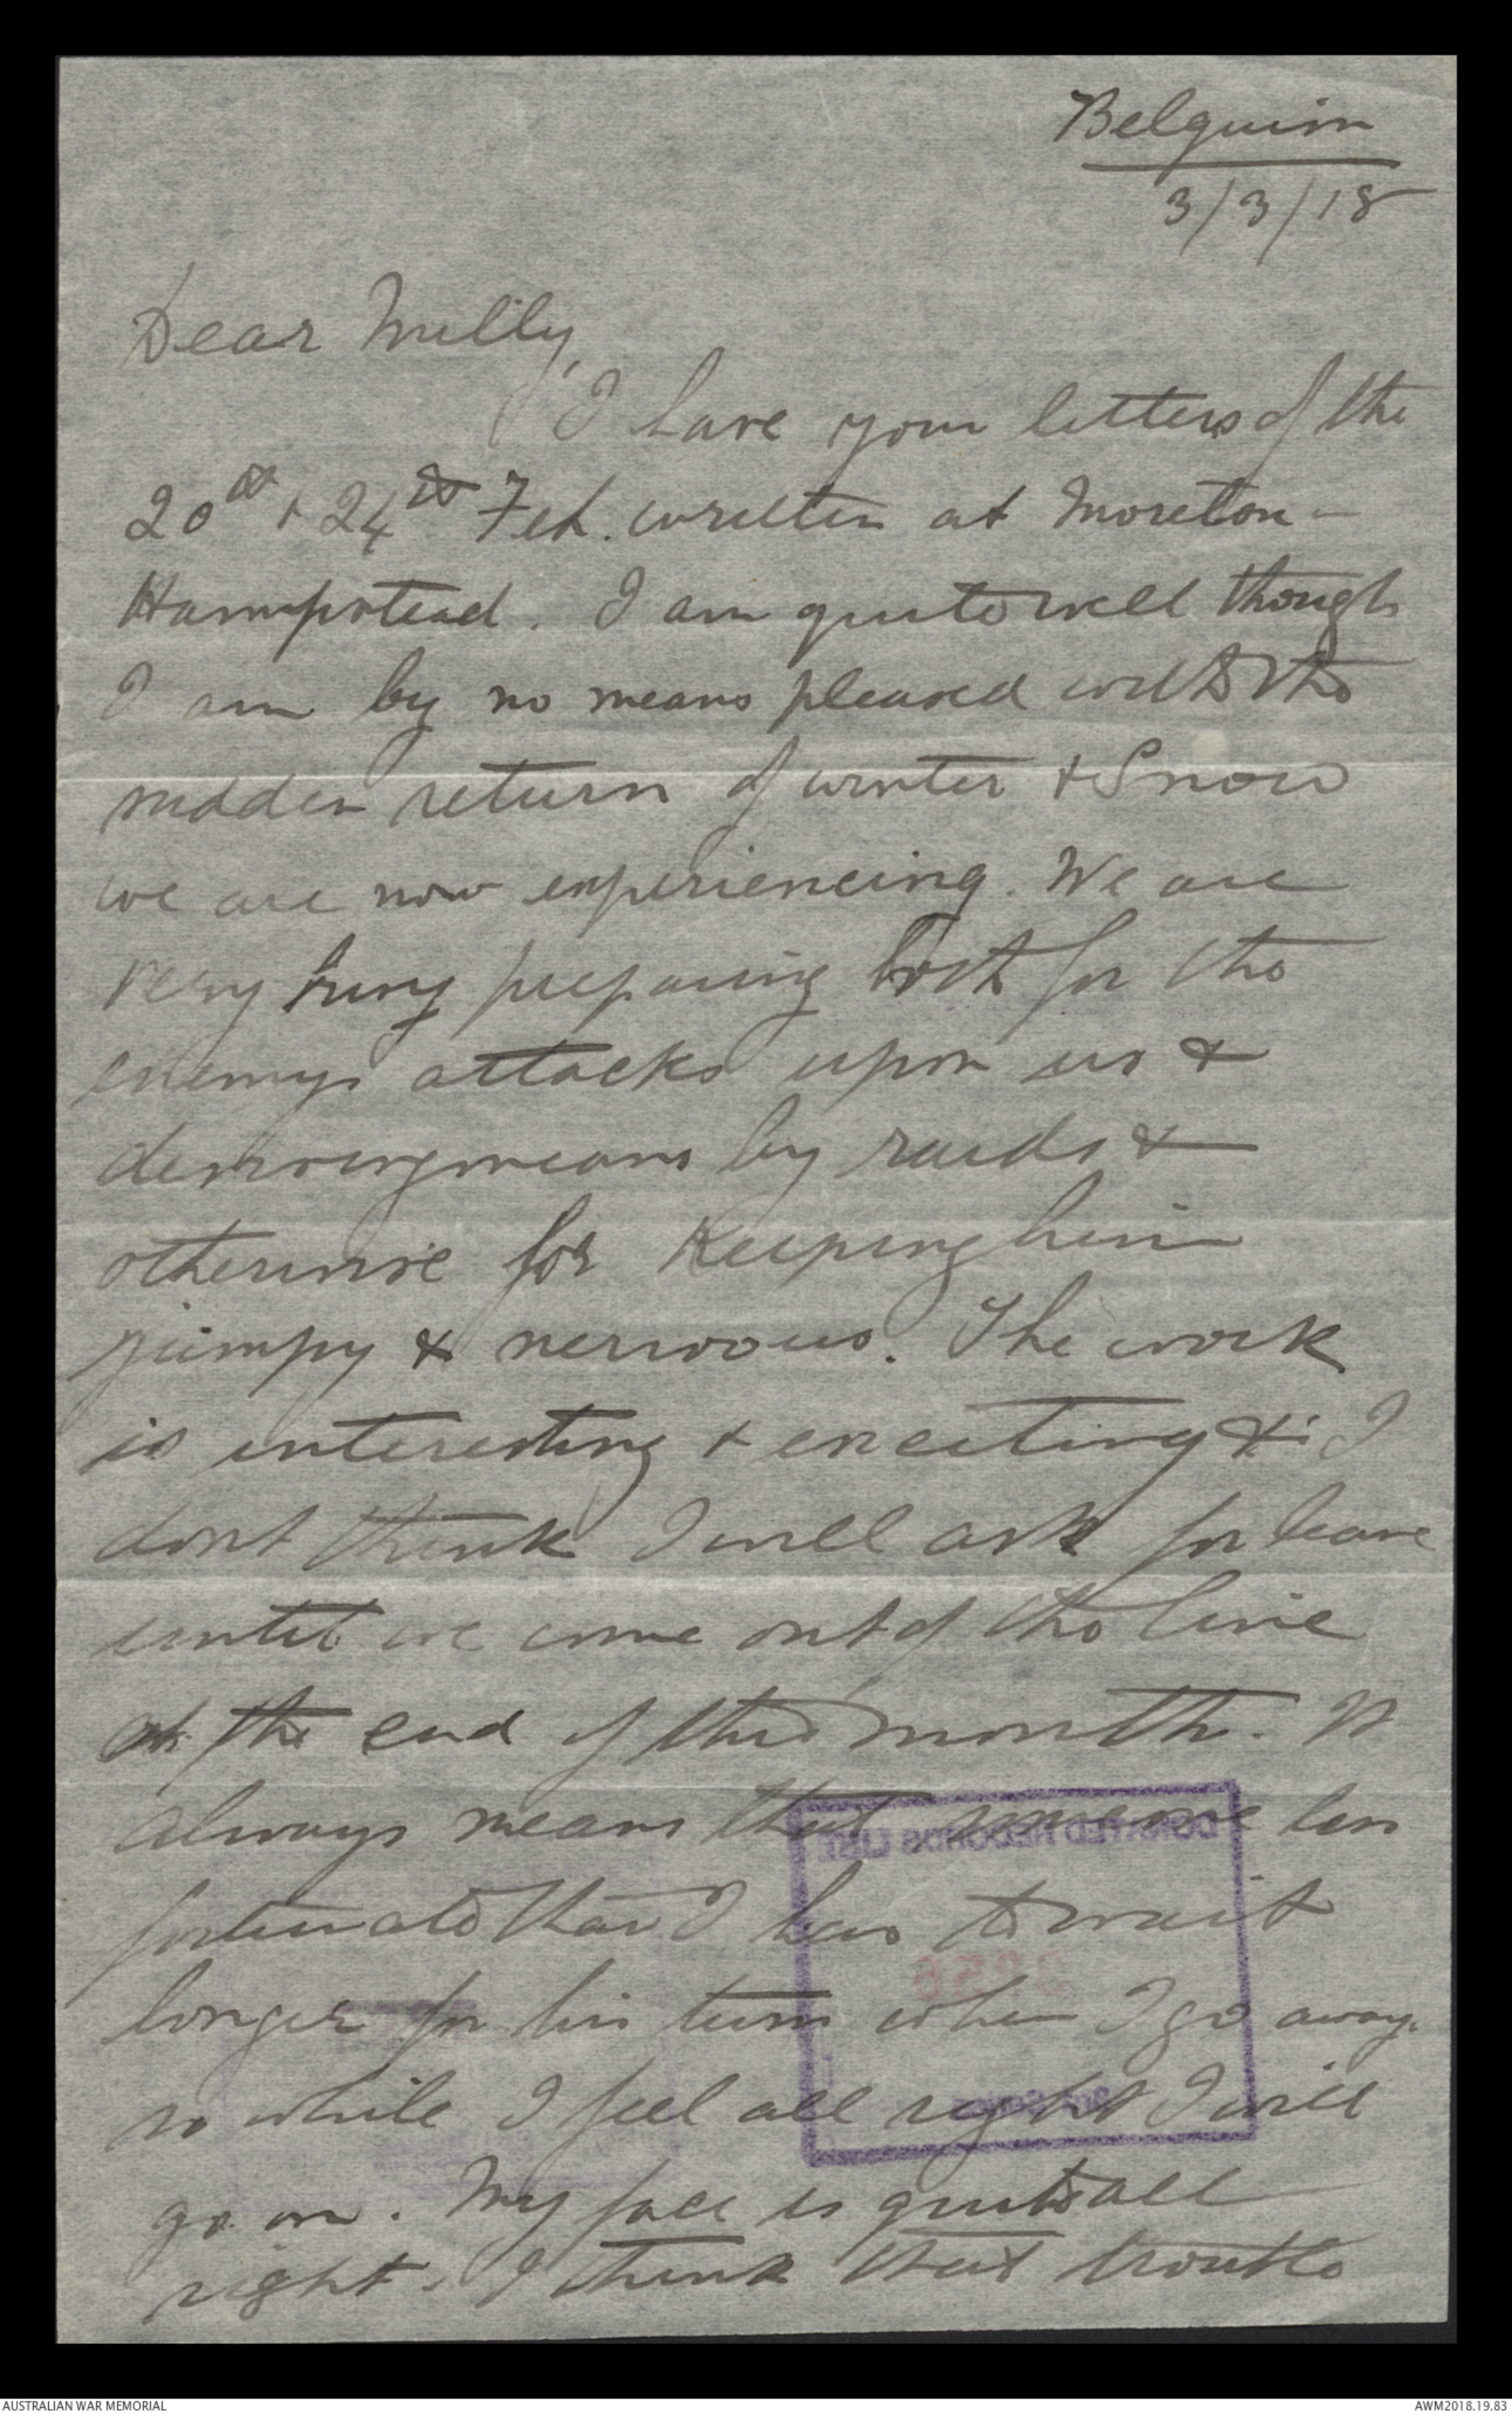 Belguim
3/3/18
Dear Milly,
I have your letters of the
20th + 24th Feb. written at Moreton-
Hampstead. I am quite well though
I am by no means pleased with the
sudden return of winter & Snow
we are now experiencing. We are
very busy preparing both for the
enemys attacks upon us &
devising means by raids &
otherwise for keeping him
jumpy & nervous. The work
is interesting & exciting & I
dont think I will ask for leave
until we come out of the line
at the end of this month. It
always means that someone less
fortunate than I has to wait
longer for his turn when I go away.
so while I feel all right I will
go on. My face is quite all
right. I think that trouble
DONATED RECORDS LIST
AUSTRALIAN WAR MEMORIAL
AWM2018.19.83